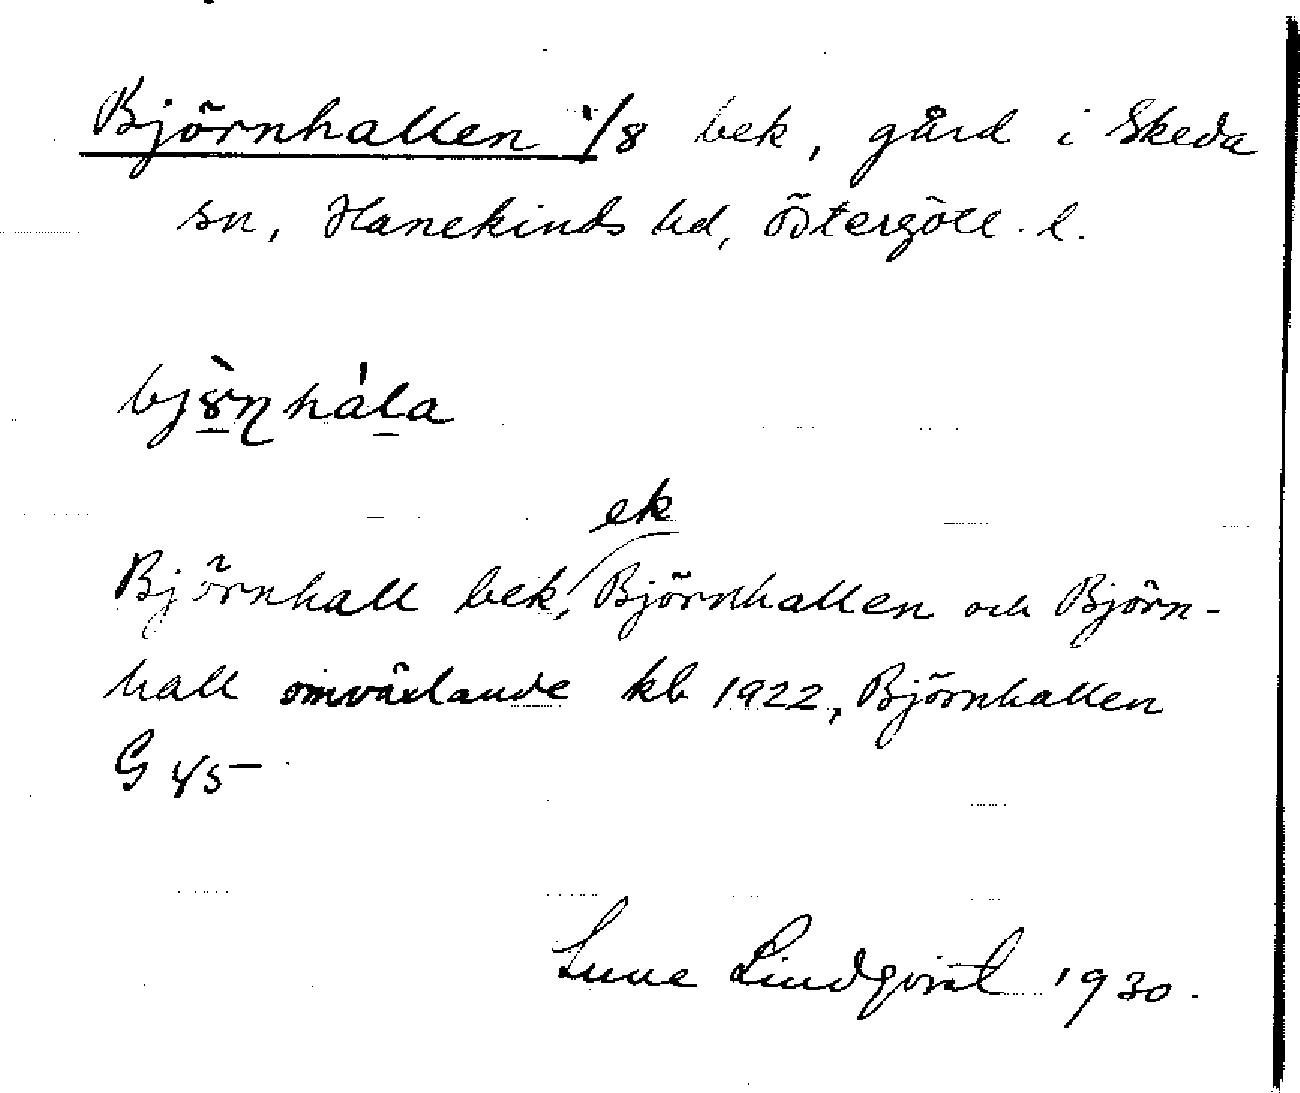 Björnhallen 1/8 bek, gård i Skeda
sn, Hanekinds hd, Östergötl. l.
bjö̀ṇhála
ek
Björnhall bek, Björnhallen och Björn-
hall omväxlande kb 1922, Björnhallen
G 45
Sune Lindqvist 1930.